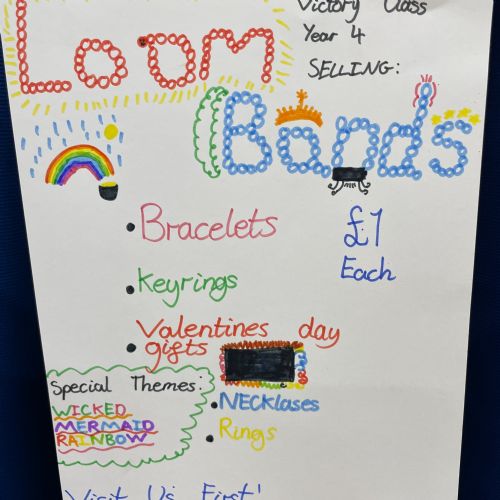 Loom
Victory Class
Year 4
SELLING:
Bands
Bracelets
£1
Each
Keyrings
Valentines day
gifts
Special Themes:
WICKED
MERMAID
RAINBOW
NECKlases
Rings
Visit Us First!